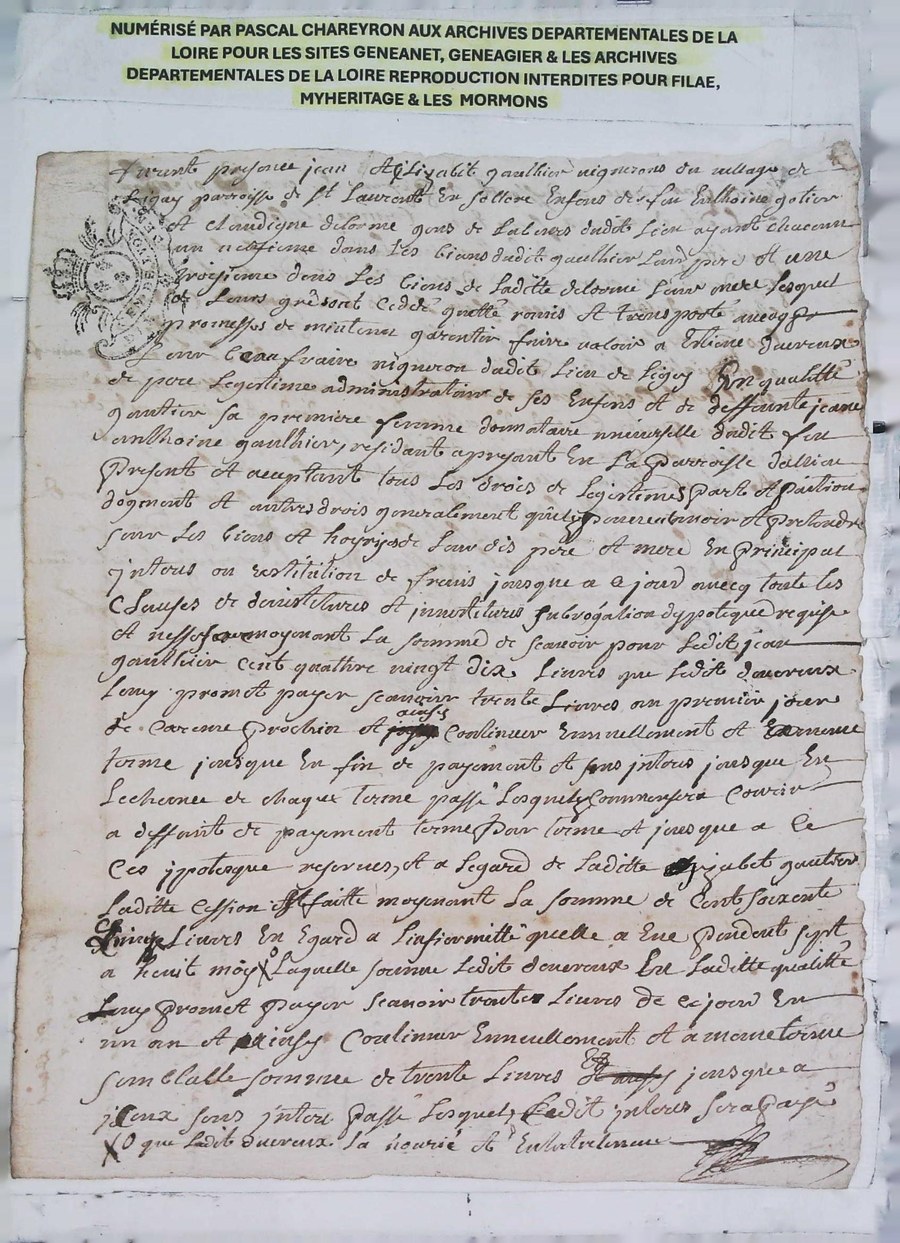 NUMÉRISÉ PAR PASCAL CHAREYRON AUX ARCHIVES DEPARTEMENTALES DE LA
LOIRE POUR LES SITES GENEANET, GENEAGIER & LES ARCHIVES
DEPARTEMENTALES DE LA LOIRE REPRODUCTION INTERDITES POUR FILAE,
MYHERITAGE & LES MORMONS
furent presence jean et Elizabit gaulhier vignerons du village de
Ligay parroisse de St Laurent En Sollore Enfens de feu Enthoine gotier
Et claudigne delorme gens de labeurs dudit Lieu ayent chacun
un neufieme dans Les biens dudit gaulhier Leur pere et une
troisieme dans Les biens de Laditte delorme Leur mere Lesquel
de Leurs gré sont Cedde quitté remis et transporté avecq
promesses de mintenu garentir faire valoir a Etiene duvreux
Leur beau fraire vigneron dudit Lieu de Ligay En qualitté
de pere Legestime administrateur de ses Enfens et de deffunte jeane
gautier sa premiere femme donnataire universelle dudit feu
anthoine gaulhier, residant apresant En La parroisse dallieu
present et aceptant tous Les drois de Legestimes part et portion
dogment et autres drois generalement quels peuvent avoir et pretendre
sur Les biens et hoyries de Leur dis pere et mere En principal
interes ou restitution de frais jousque a ce jour avecq toute les
Clauses de devistitures et investitures subrogation dypoteque requise
et nessesere moyenant La somme de scavoir pour Ledit jean
gaulhier cent quatre vingt dix Livres que Ledit duvreux
Luy promet payer scavoir trente Livres au premier jour
de Careme prochin et ainsy Contineur Ennuellement et a meme
terme jousque En fin de payement et sans interes jousque En
Lecheance de chaque terme passé Lesquels Commensera Courir
a deffaut de payement terme par terme et jousque a Ce
Ces ypotesque reservées, et a Legard de Laditte Elizabet gautier
Laditte Cession Est faitte moyenant La somme de Cent soixente
Livres En Egard a Linfiormetté quelle a Eue pendent sept
a heuit moy Laquelle somme Ledit duvreux En Laditte qualitté
Luy promet payer scavoir trente Livres de ce jour En
un an et ainsy Contineur Ennuellement et a meme terme
semblable somme de trente Livres jousque a
iceux sans interes passé Lesquels Ledit interes sera payé
X O que Ledit duvreux La nourie et Entretenue